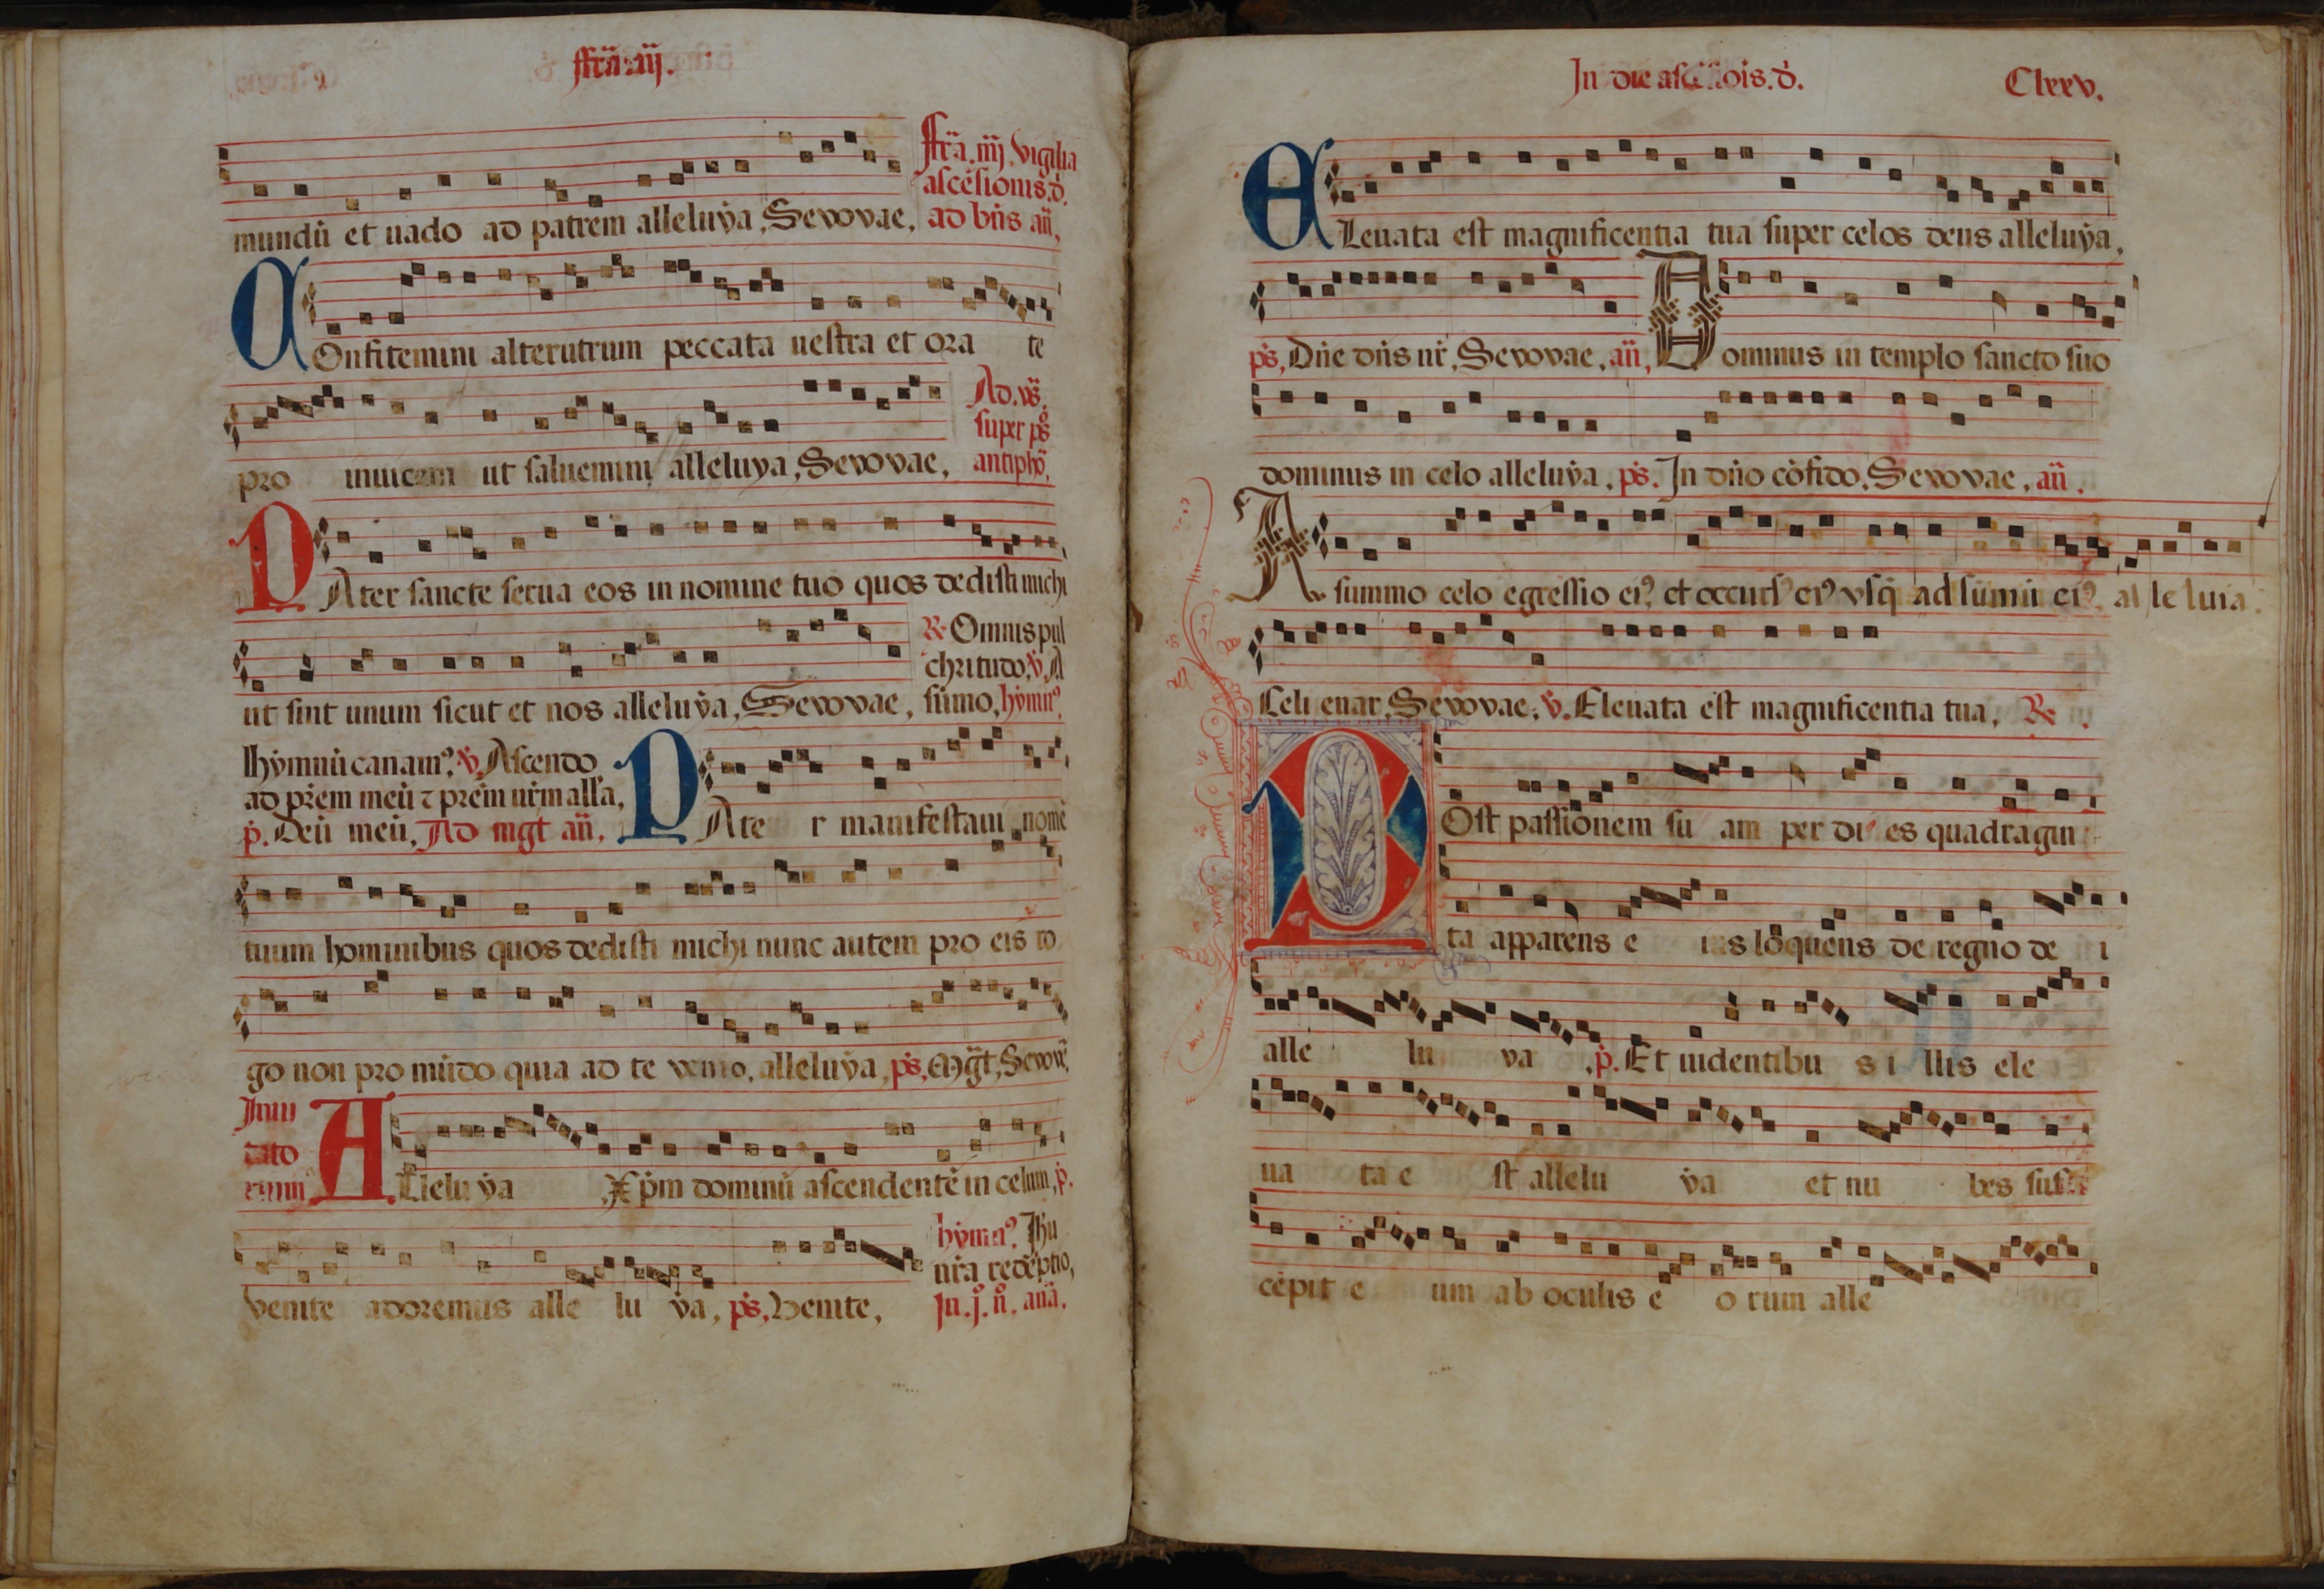 ffrã.iiij.
mundũ et uado ad patrem alleluẏa, Seuouae,
ffrã.iiij. vigilia
ascẽsionis.d̃.
ad bñs añ,
COnfitemini alterutrum peccata uestra et ora te
pro inuicem ut saluemini alleluya, Seuouae,
Ad. vs̃.
super ps̃
antiphõ,
PAter sancte serua eos in nomine tuo quos dedisti michi
ut sint unum sicut et nos alleluẏa, Seuouae,
R. Omnis pul
chritudo. v̇. A
sũmo, hẏmnꝰ,
hẏmnũ canamꝰ, v̇. Ascendo
ad pr̃em meũ ⁊ pr̃em ur̃m all'a,
ṗ. Deũ meũ, Ad mgt añ.
PAte r manifestaui nomẽ
tuum hominibus quos dedisti michi nunc autem pro eis ro
go non pro mũdo quia ad te venio, alleluẏa, ps̃, Mg̃t, Seuoũe,
Inui
tato
rium
ALleluẏa Xp̃m dominũ ascendentẽ in celum, ṗ.
venite adoremus alle lu ẏa, ps̃, Venite,
hẏmnꝰ. Ih̃u
nr̃a redẽptio,
In. j. ñ. anã.
In die ascẽsiõis. d̃.
Clxxv.
ELeuata est magnificentia tua super celos deus alleluẏa,
ps̃, Dñe dñs nr̃, Seuouae, añ, Dominus in templo sancto suo
dominus in celo alleluẏa, ps̃. In dño cõfido. Seuouae, añ.
A summo celo egressio eiꝰ et occursꝰ eiꝰ vsq̃ ad sũmũ eiꝰ. al le luia.
Celi enar, Seuouae, v̇. Eleuata est magnificentia tua, R.
POst passionem su am per di es quadragin
ta apparens e is loquens de regno de i
alle lu ya, ṗ. Et uidentibu s i llis ele
ua ta e st allelu ẏa et nu bes susce
cepit e um ab oculis e o rum alle